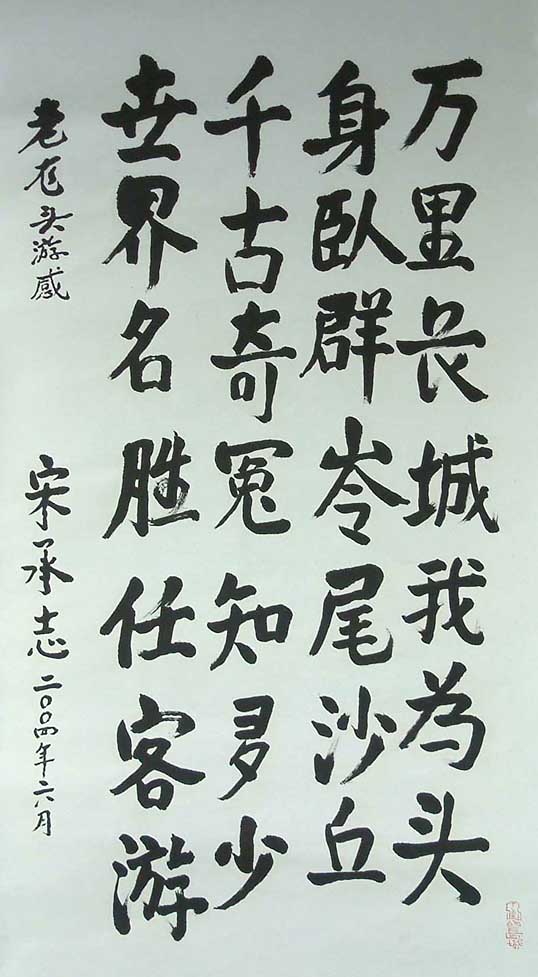 万里长城我为头
身卧群岺尾沙丘
千古奇冤知多少
世界名胜任客游
老龙头游感
宋承志二〇〇四年六月